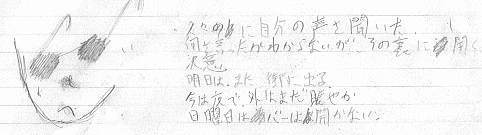 久々に自分の声を聞いた。
何を言ったかわからないが、その意に聞く
決意。
明日は、また街に出る
今は夜で、外はまだ賑やか
日曜日はバーは開かない